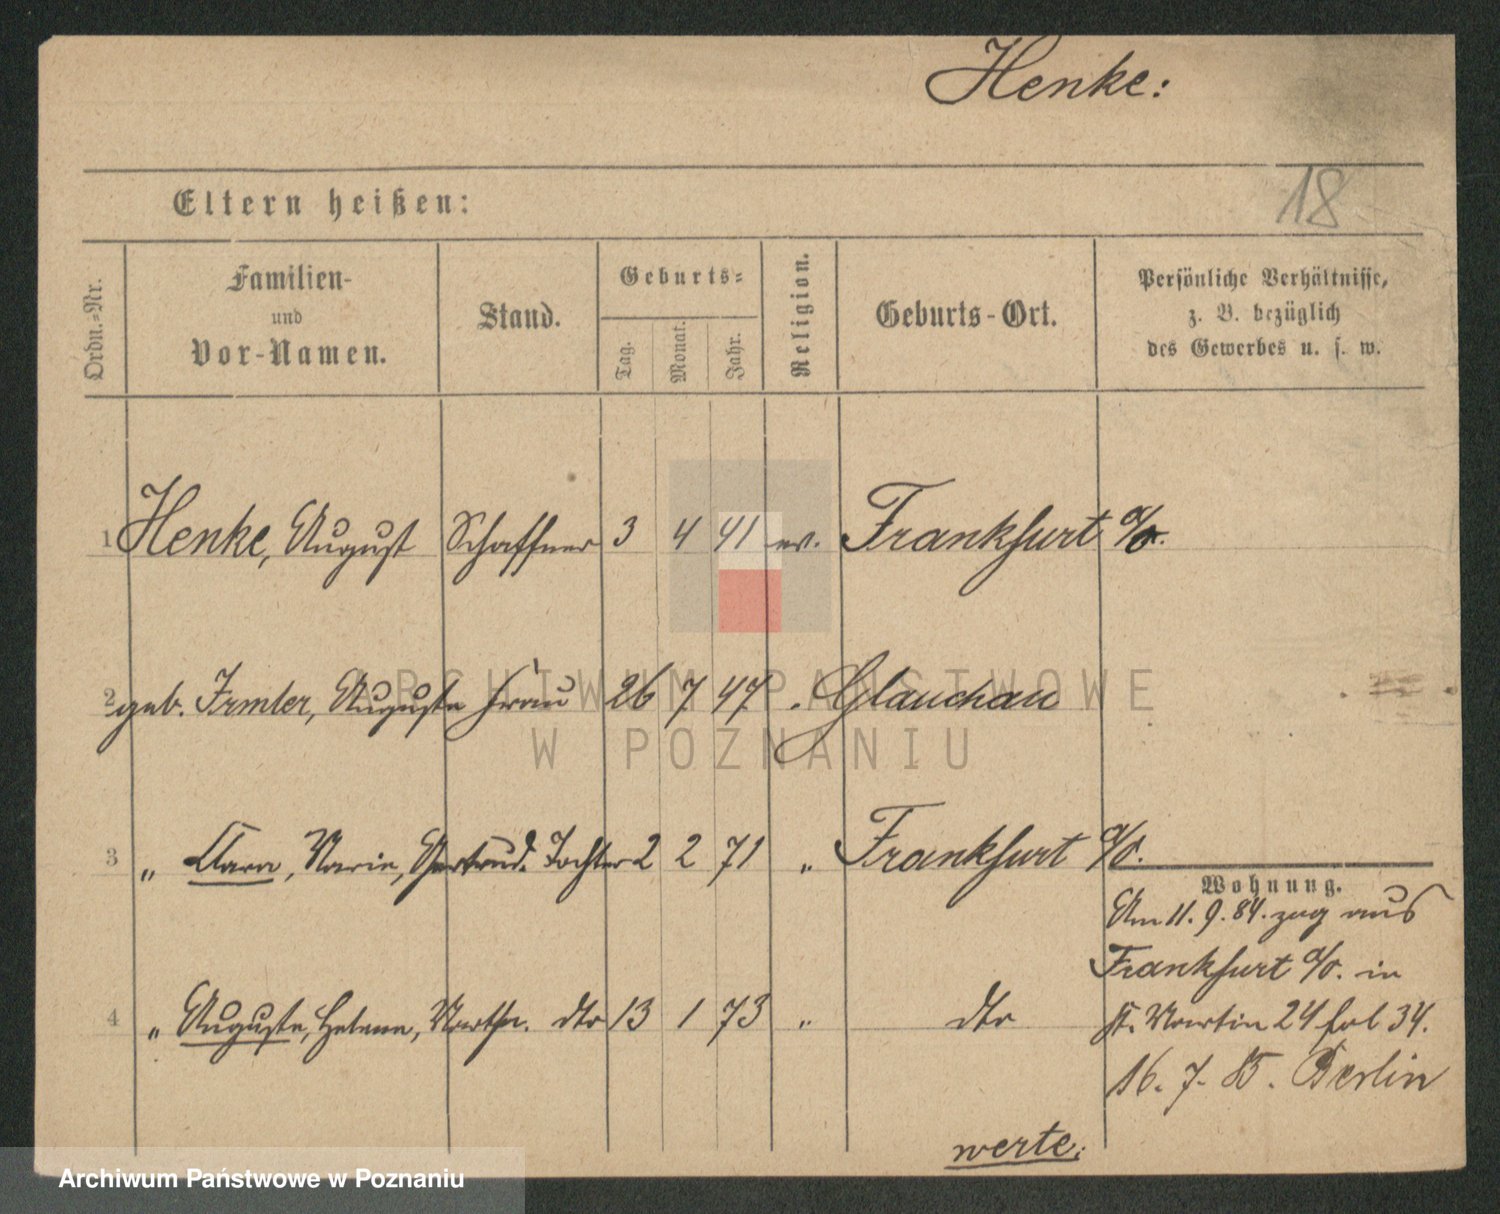 Henke:
18
Eltern heißen:
Ordn.-Nr.
Familien-
und
Vor-Namen.
Stand.
Geburts-
Tag.
Monat.
Jahr.
Religion.
Geburts-Ort.
Persönliche Verhältnisse,
z. B. bezüglich
des Gewerbes u. s. w.
1 Henke, August Schaffner 3 4 41 ev. Frankfurt a/o.
2 geb. Irmler, Auguste Frau 26 7 47 " Glauchau
3 " Clara, Marie, Gertrud. Tochter 2 2 71 " Frankfurt a/o.
Wohnung.
Am 11. 9. 84. zog aus
Frankfurt a/o. in
St. Martin 24 fol 34.
16. 7. 85. Berlin
4 " Auguste, Helene, Martha. dto 13 1 73 " dto
werte:
ARCHIWUM PAŃSTWOWE
W POZNANIU
Archiwum Państwowe w Poznaniu